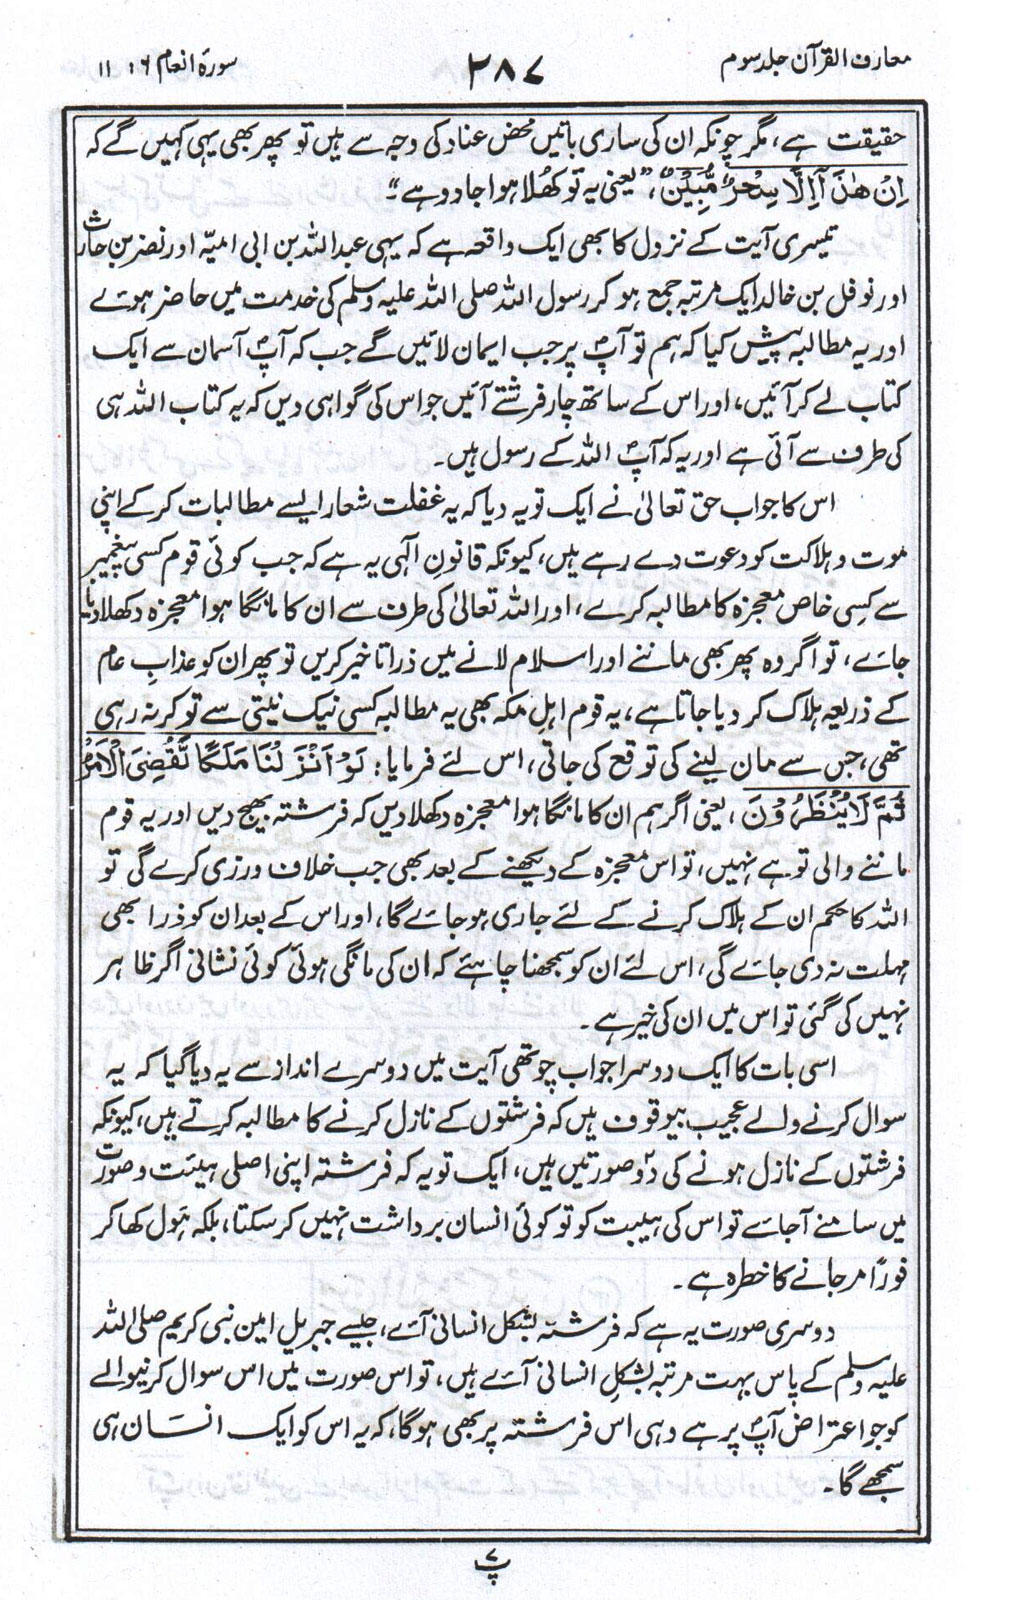 معارف القرآن جلد سوم
۲۸۷
سورۂ انعام ۶ : ۱۱
حقیقت ہے، مگر چونکہ ان کی ساری باتیں محض عناد کی وجہ سے ہیں تو پھر بھی یہی کہیں گے کہ
اِنْ هٰذَآ اِلَّا سِحْرٌ مُّبِيْنٌ، ”یعنی یہ تو کھُلا ہوا جادو ہے“۔
تیسری آیت کے نزول کا بھی ایک واقعہ ہے کہ یہی عبداللہ بن ابی امیّہ اور نضر بن حارث
اور نوفل بن خالد ایک مرتبہ جمع ہو کر رسول اللہ صلی اللہ علیہ وسلم کی خدمت میں حاضر ہوئے
اور یہ مطالبہ پیش کیا کہ ہم تو آپؐ پر جب ایمان لائیں گے جب کہ آپؐ آسمان سے ایک
کتاب لے کر آئیں، اور اس کے ساتھ چار فرشتے آئیں جو اس کی گواہی دیں کہ یہ کتاب اللہ ہی
کی طرف سے آئی ہے اور یہ کہ آپؐ اللہ کے رسول ہیں۔
اس کا جواب حق تعالیٰ نے ایک تو یہ دیا کہ یہ غفلت شعار ایسے مطالبات کر کے اپنی
موت و ہلاکت کو دعوت دے رہے ہیں، کیونکہ قانونِ الٰہی یہ ہے کہ جب کوئی قوم کسی پیغمبر
سے کسِی خاص معجزہ کا مطالبہ کرے، اور اللہ تعالیٰ کی طرف سے ان کا مانگا ہوا معجزہ دکھلا دیا
جائے، تو اگر وہ پھر بھی ماننے اور اسلام لانے میں ذرا تاخیر کریں تو پھر ان کو عذابِ عام
کے ذریعہ ہلاک کر دیا جاتا ہے، یہ قوم اہلِ مکہ بھی یہ مطالبہ کسی نیک نیتی سے تو کر نہ رہی
تھی، جس سے مان لینے کی توقع کی جاتی، اس لئے فرمایا: لَوْ اَنْزَلْنَا مَلَكًا لَّقُضِیَ الْاَمْرُ
ثُمَّ لَا يُنْظَرُوْنَ، یعنی اگر ہم ان کا مانگا ہوا معجزہ دکھلا دیں کہ فرشتہ بھیج دیں اور یہ قوم
ماننے والی تو ہے نہیں، تو اس معجزہ کے دیکھنے کے بعد بھی جب خلاف ورزی کرے گی تو
اللہ کا حکم ان کے ہلاک کرنے کے لئے جاری ہو جائے گا، اور اس کے بعد ان کو ذرا بھی
مہلت نہ دی جائے گی، اس لئے ان کو سمجھنا چاہئے کہ ان کی مانگی ہوئی کوئی نشانی اگر ظاہر
نہیں کی گئی تو اس میں ان کی خیر ہے۔
اسی بات کا ایک دوسرا جواب چوتھی آیت میں دوسرے انداز سے یہ دیا گیا کہ یہ
سوال کرنے والے عجیب بیوقوف ہیں کہ فرشتوں کے نازل کرنے کا مطالبہ کرتے ہیں، کیونکہ
فرشتوں کے نازل ہونے کی دو صورتیں ہیں، ایک تو یہ کہ فرشتہ اپنی اصلی ہیئت و صورت
میں سامنے آجائے تو اس کی ہیبت کو تو کوئی انسان برداشت نہیں کر سکتا، بلکہ ہَول کھا کر
فورًا مر جانے کا خطرہ ہے۔
دوسری صورت یہ ہے کہ فرشتہ بشکل انسانی آئے، جیسے جبریل امین نبی کریم صلی اللہ
علیہ وسلم کے پاس بہت مرتبہ بشکلِ انسانی آئے ہیں، تو اس صورت میں اس سوال کرنیوالے
کو جو اعتراض آپؐ پر ہے وہی اس فرشتہ پر بھی ہوگا، کہ یہ اس کو ایک انسان ہی
سمجھے گا۔
پ ۷